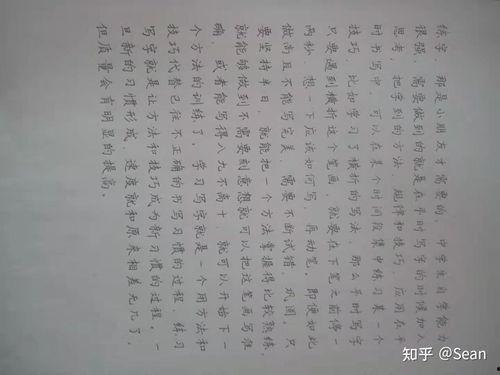 练字，那是小朋友才需要的，中学生自学能力
很强，需要做到的就是在平时写字的时候加入
思考，把学到的方法、规律和技巧，应用在平
时书写中，可以在某个时间段集中练习某一个
技巧，比如学习了横折的写法，那么平时写字
只要遇到横折这个笔画，就要在下笔之前停一
两秒，想一下应该如何写，再动笔。即便如此
做尚且不能写完美，需要不断试错、巩固。只
要坚持半日，就能把一个方法掌握得比较熟练，
就能够做到不需要刻意想就可以把这笔画写准
确，或者能写得八九不离十，就可以开始下一
个方法的训练了。学习写字就是一个用方法和
技巧代替已往不正确的书写习惯的过程，练习
写字就是让方法和技巧成为新习惯的过程。一
旦新的习惯形成，速度就和原来相差无几了，
但质量会有明显的提高。
知乎 @Sean